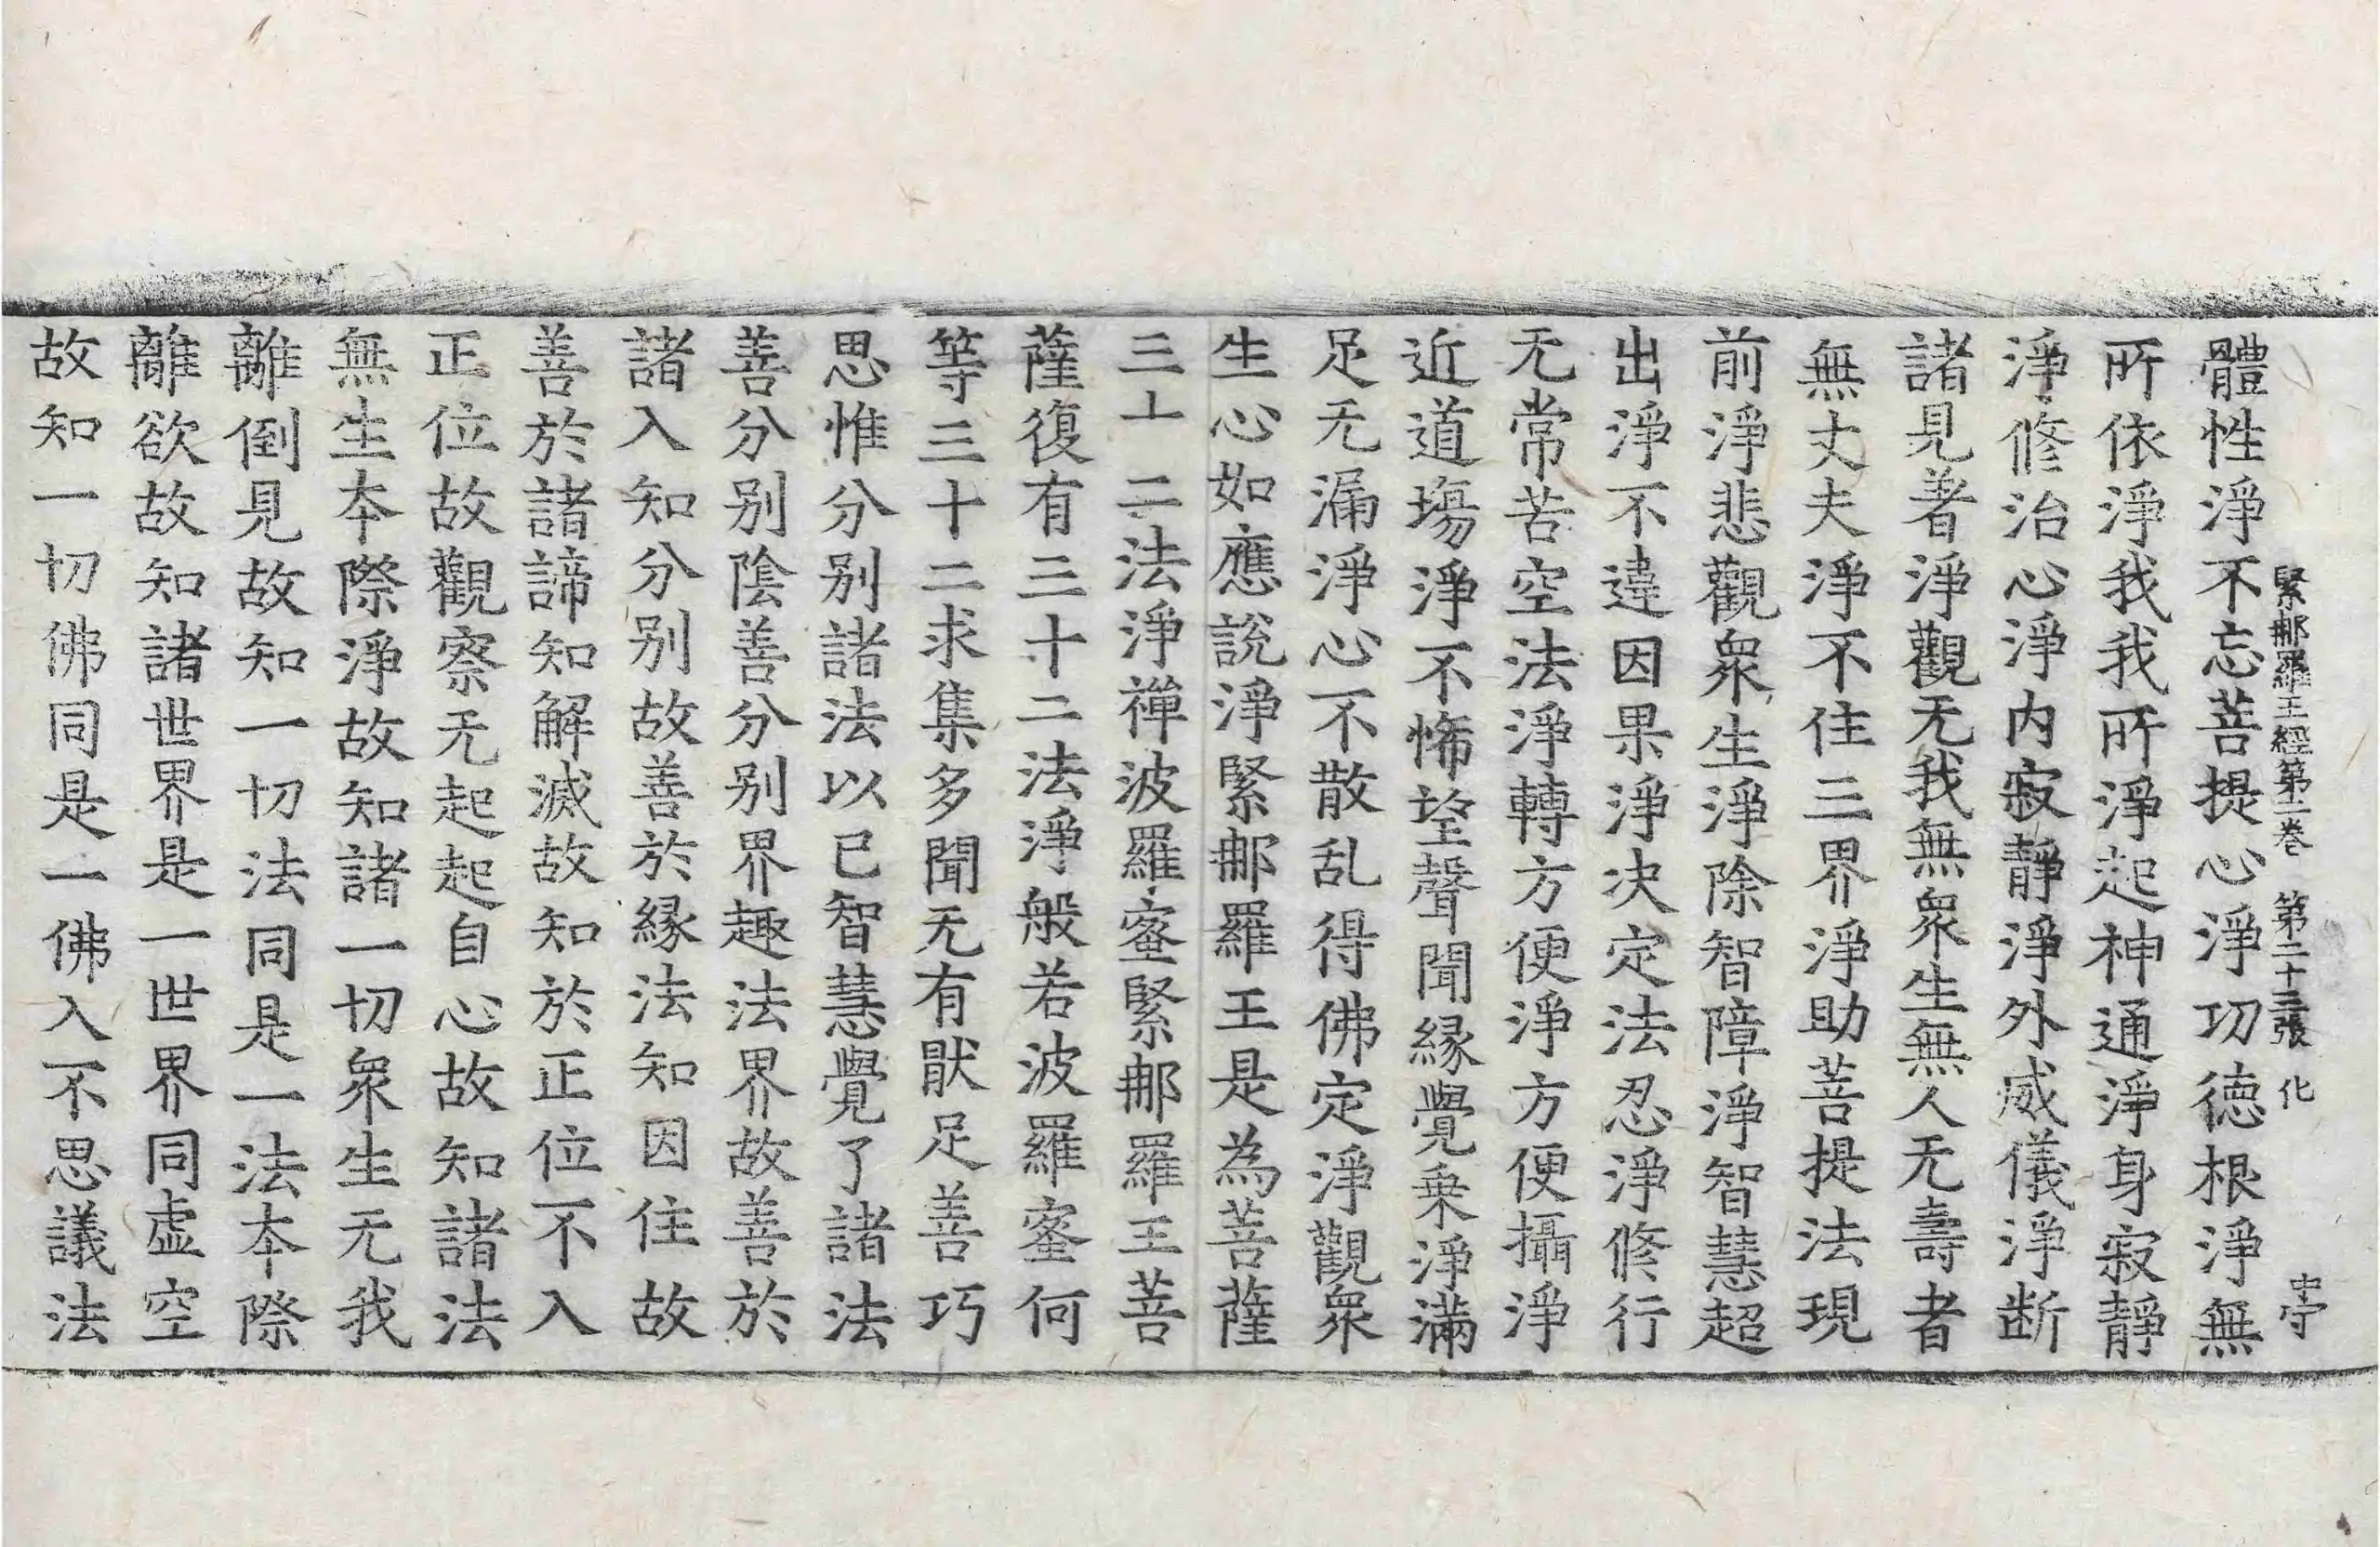 緊那羅王經第二卷 第二十三張 化 守
體性淨不忘菩提心淨功德根淨無
所依淨我我所淨起神通淨身寂靜
淨修治心淨内寂靜淨外威儀淨断
諸見著淨觀无我無衆生無人无壽者
無丈夫淨不住三界淨助菩提法現
前淨悲觀衆生淨除智障淨智慧超
出淨不違因果淨决定法忍淨修行
无常苦空法淨轉方便淨方便攝淨
近道場淨不悕望聲聞緣覺乗淨滿
足无漏淨心不散乱得佛定淨觀衆
生心如應說淨緊那羅王是為菩薩
三十二法淨禪波羅蜜緊那羅王菩
薩復有三十二法淨般若波羅蜜何
等三十二求集多聞无有猒足善巧
思惟分别諸法以已智慧覺了諸法
善分别陰善分别界趣法界故善於
諸入知分别故善於緣法知因住故
善於諸諦知解滅故知於正位不入
正位故觀察无起起自心故知諸法
無生本際淨故知諸一切衆生无我
離倒見故知一切法同是一法本際
離欲故知諸世界是一世界同虚空
故知一切佛同是一佛入不思議法